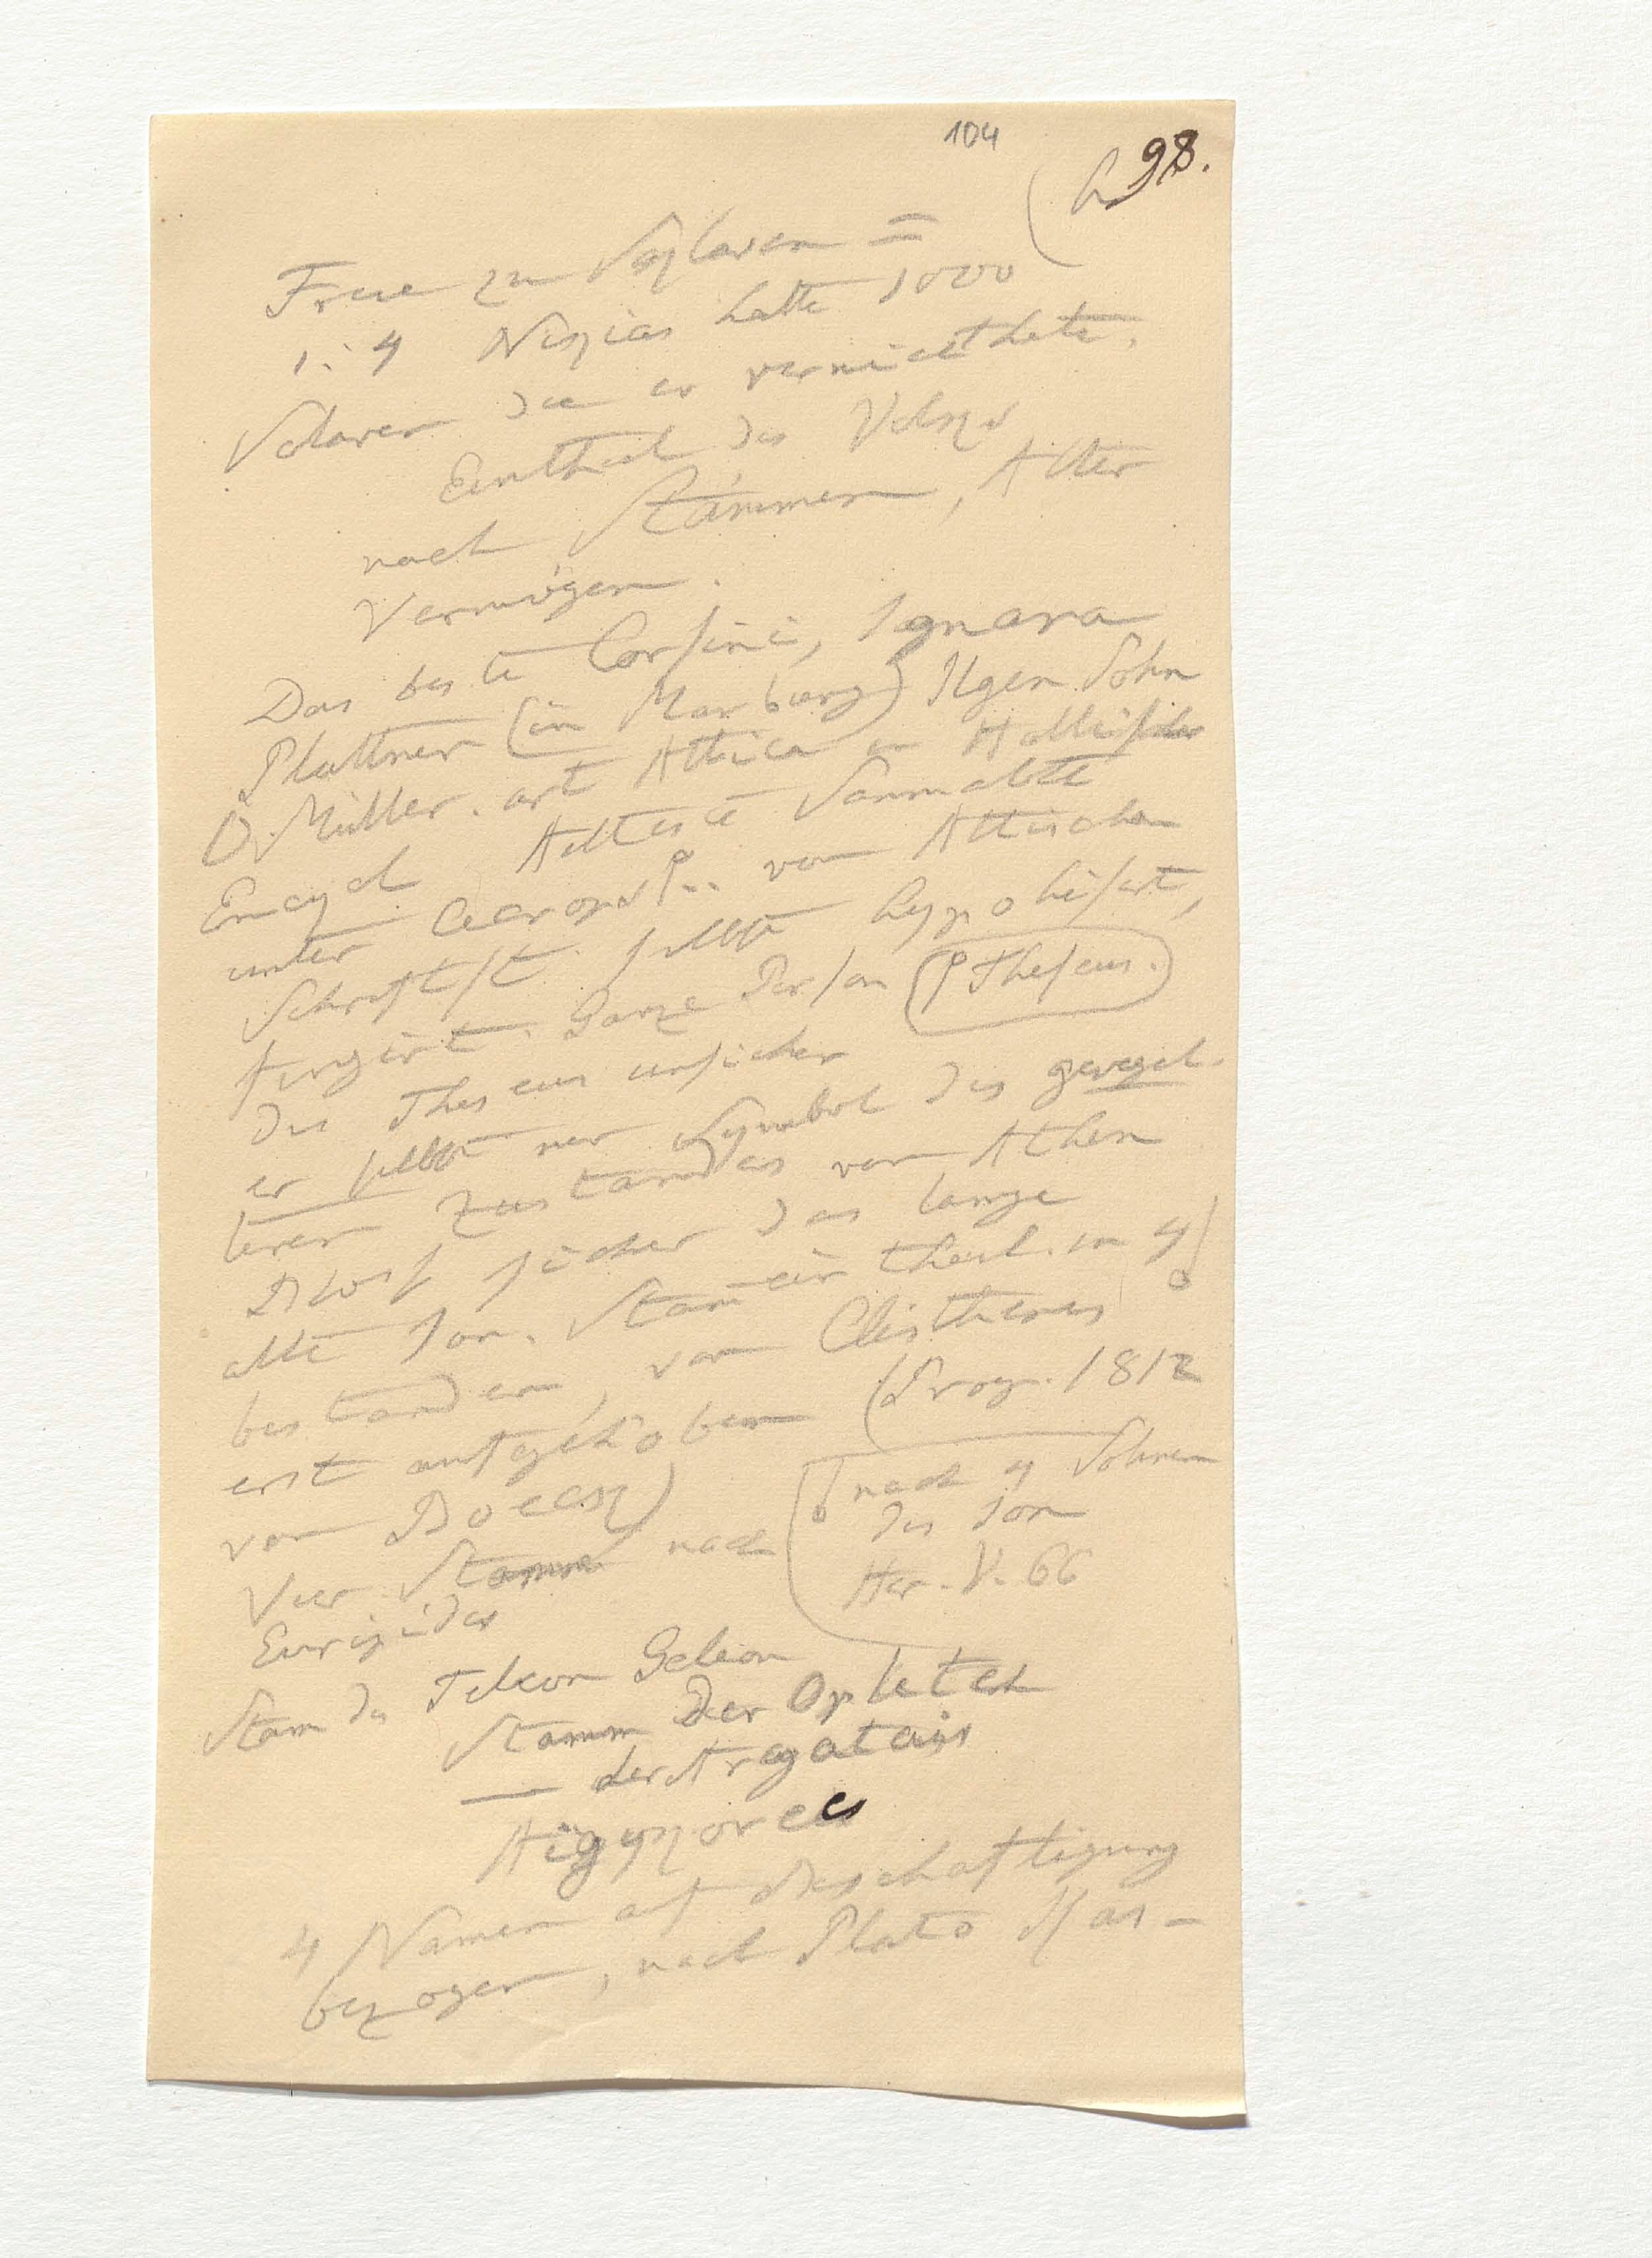 104
98.
Freie zu Sklaven =
1:4 Nikias hatte 1000
Sclaven die er vermiethete.
Eintheil des Volks
nach Stämmen, Alter
Vermögen.
Das beste Corsini, Ignara
Plattner (in Marburg) Ilgen Sohn
O. Müller. art Attica in Hallischer
Encycl Aelteste
unter Cecrops von Attischen
Schriftst. selbst hypothisirt,
fingirt. Ganze Person (Theseus.)
des Theseus unsicher
er selbst nur Symbol des geregel-
teren Zustandes von Athen
Blos sicher das lange
alte Ion. Stam̄eintheil. in 4
bestanden, von Clisthenes
erst aufgehoben (Prog. 1812
von Boeckh)
Vier Stamme nach
Euripides
nach 4 Sohnen
des Ion
Her. V. 66
Stam des Teleon Geleon
Stamm der Opleten
— der Argatais
Aigykorees
4 Namen auf Beschaftigung
bezogen, nach Plato